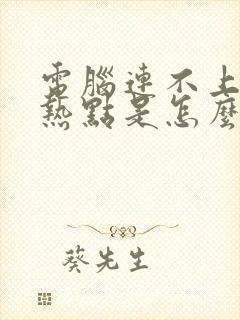 電腦連不上
熱點是怎麼
葵先生